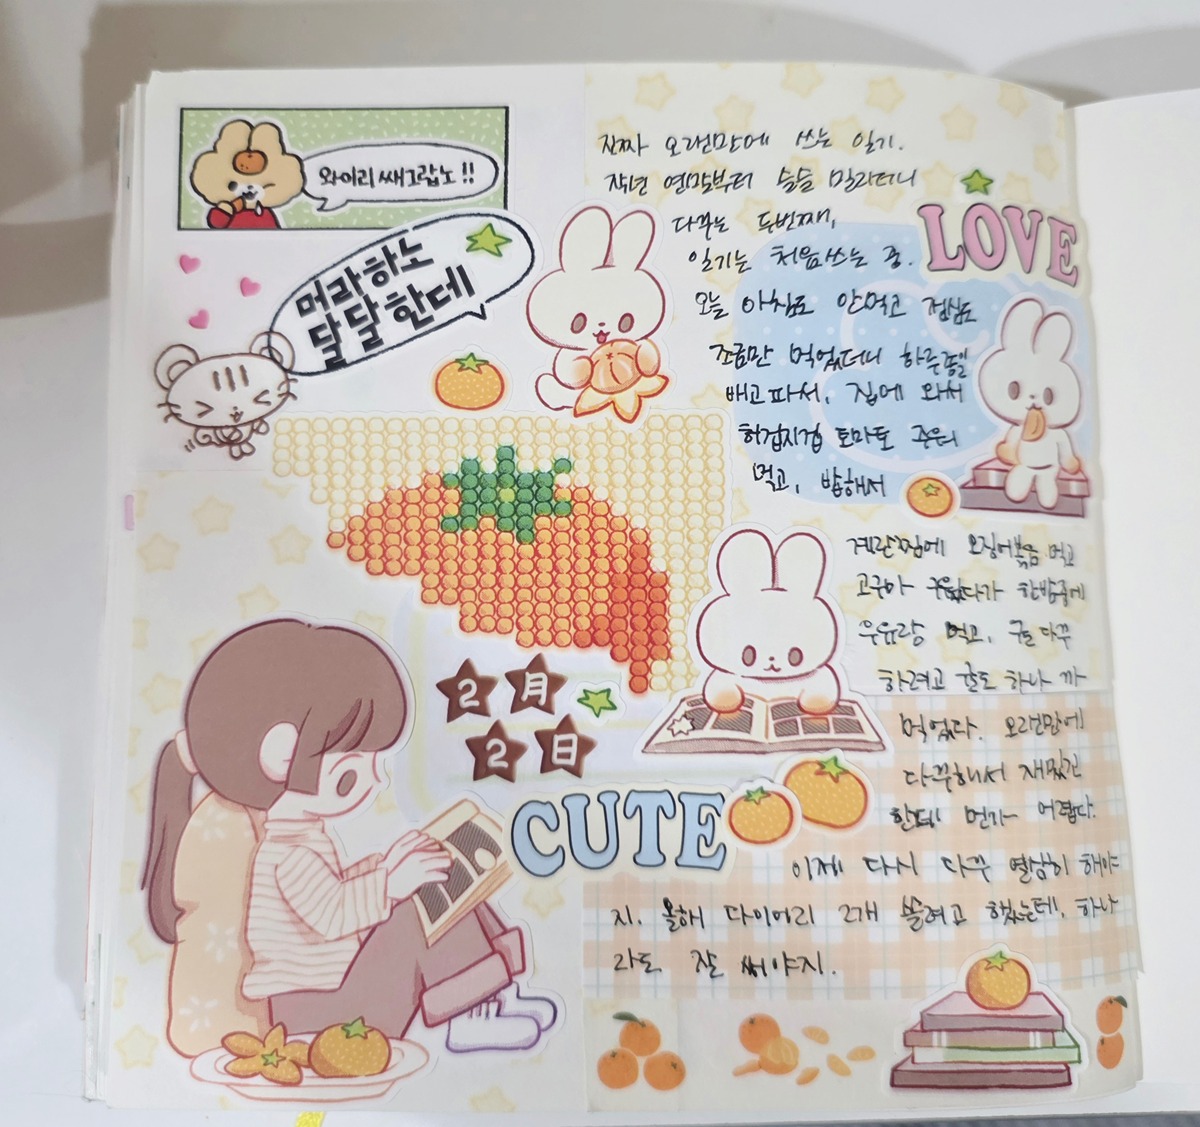 와이리 쌔그랍노!!
머라하노
달달한데
진짜 오랜만에 쓰는 일기.
작년 연말부터 슬슬 밀리더니
다꾸는 두번째,
일기는 처음 쓰는 중.
LOVE
오늘 아침도 안먹고 점심도
조금만 먹었더니 하루종일
배고파서, 집에 와서
허겁지겁 토마토 주워
먹고, 밥해서
계란찜에 오징어볶음 먹고
고구마 구웠다가 한밤중에
우유랑 먹고, 귤 다꾸
하려고 귤도 하나 까
먹었다. 오랜만에
다꾸해서 재밌긴
한데 먼가 어렵다.
2月
2日
CUTE
이제 다시 다꾸 열심히 해야
지. 올해 다이어리 2개 쓸려고 했는데, 하나
라도 잘 써야지.